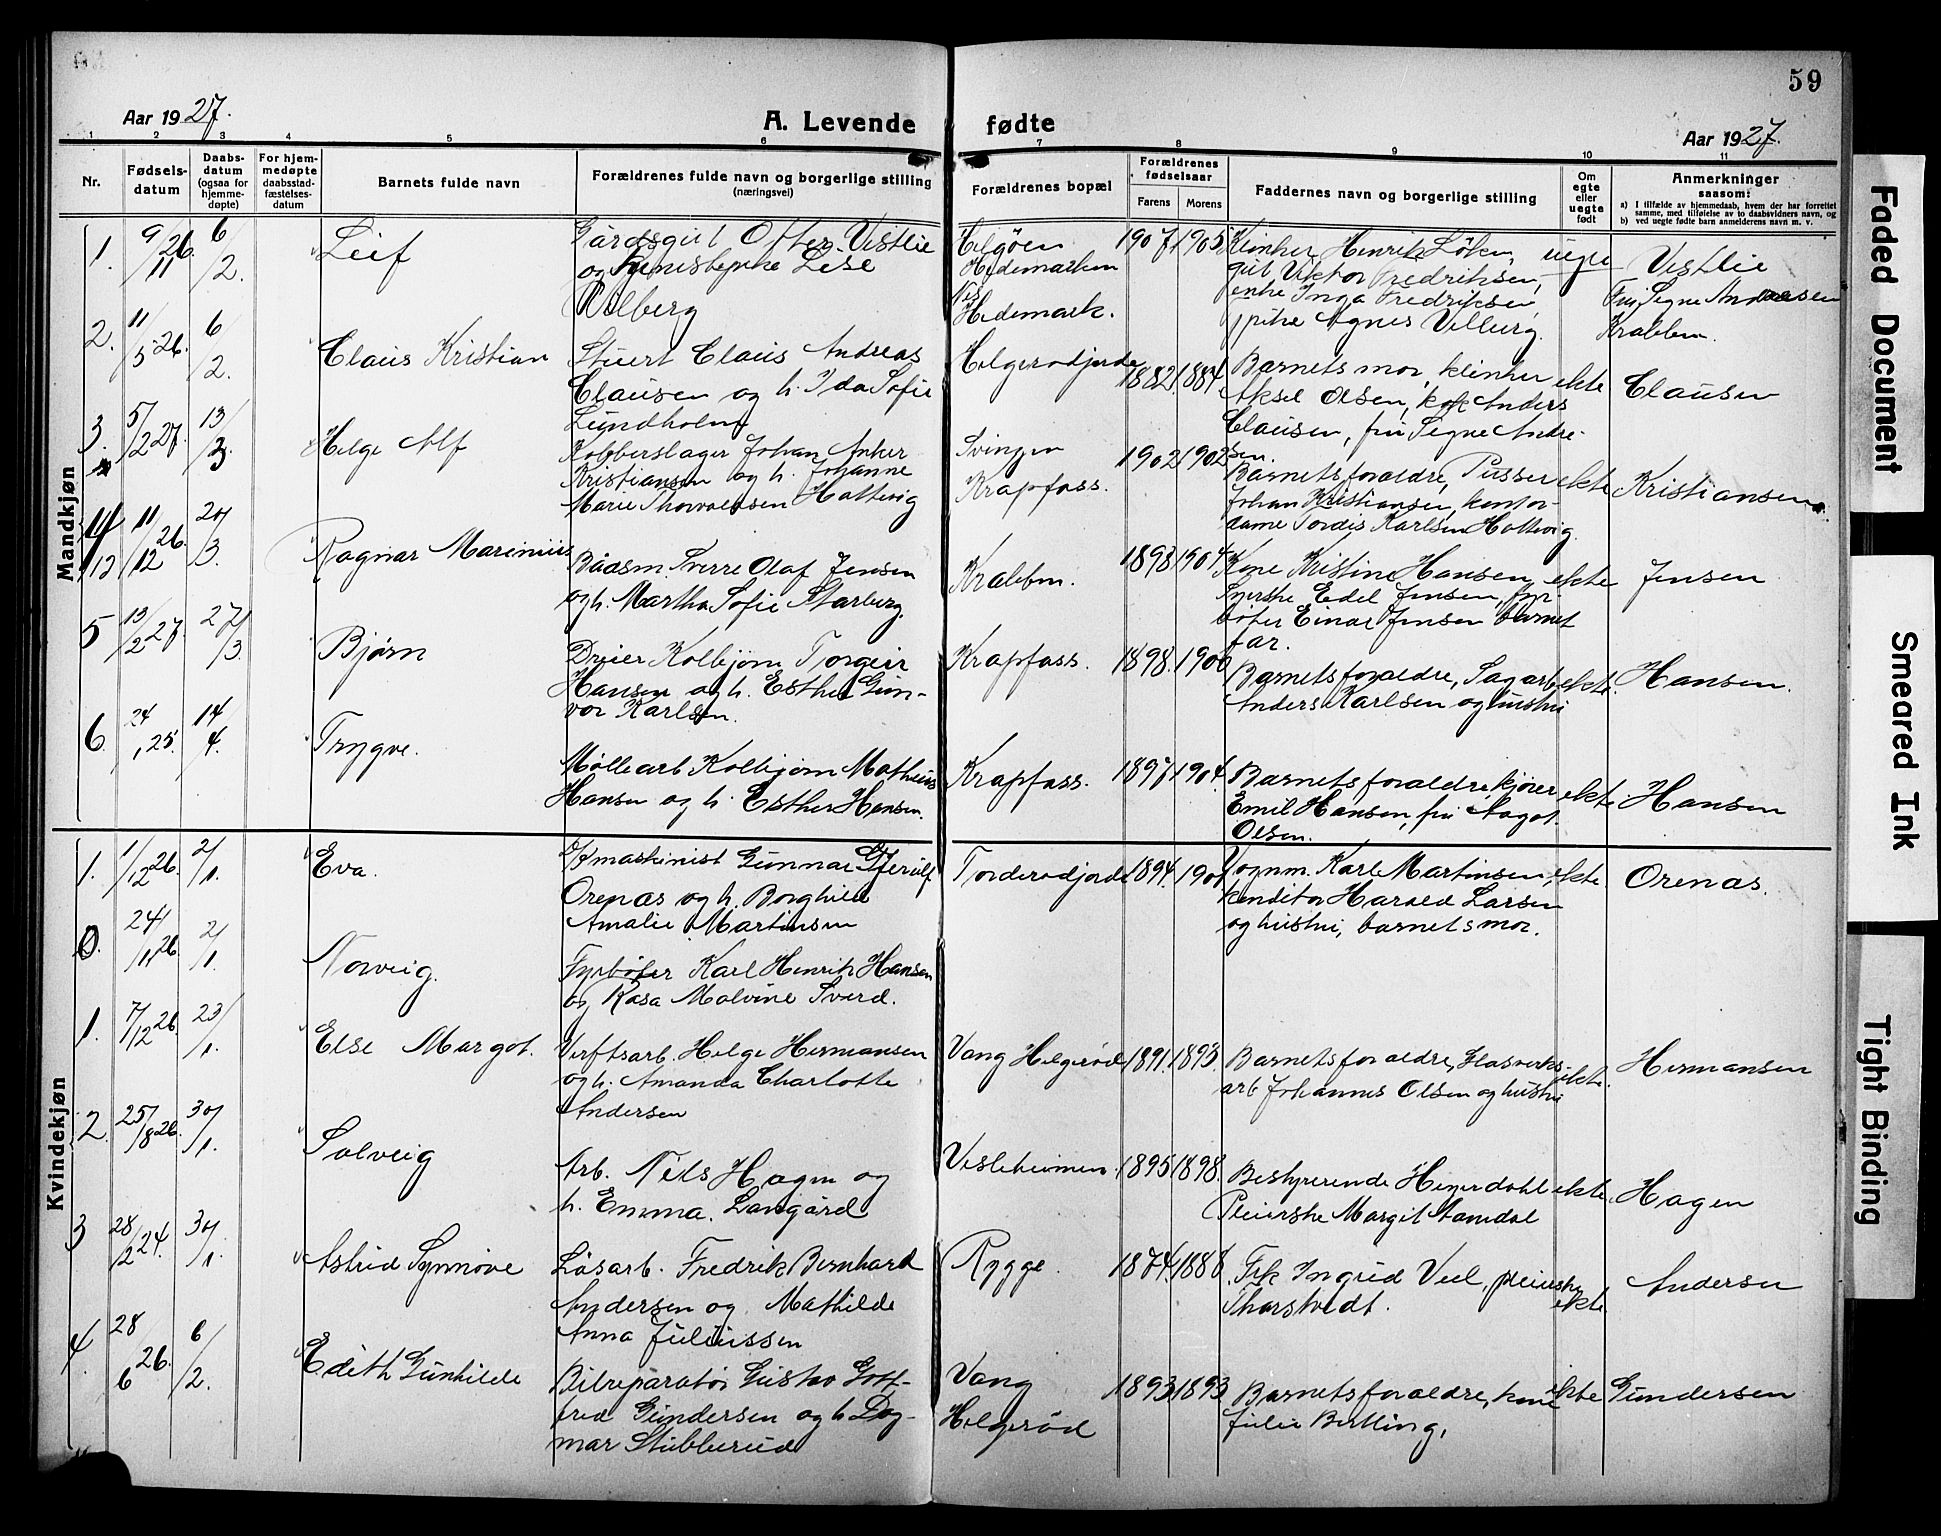 59
Aar 1927.
A. Levende fødte
Aar 1927.
1 2 3 4 5 6 7 8 9 10 11
Nr.
Fødsels-
datum
Daabs-
datum
(ogsaa for
hjemme-
døpte)
For hjem-
medøpte
daabsstad-
fæstelses-
datum
Barnets fulde navn
Forældrenes fulde navn og borgerlige stilling
(næringsvei)
Forældrenes bopæl
Forældrenes
fødselsaar
Farens
Morens
Faddernes navn og borgerlige stilling
Om
egte
eller
uegte
født
Anmerkninger
saasom:
a) I tilfælde av hjemmedaab, hvem der har forrettet
samme, med tilføielse av to daabsvidners navn, og
b) ved uegte fødte barn anmelderens navn m. v.
Mandkjøn
1. 9/11 26. 6/2. Leif
Gårdsgut Otter Vestlie
og tjenestepike Lise
Wilberg
Helgøen
Hedemarken
Nes
Hedemark.
1907. 1905
Klinker Henrik Løken,
gut Viktor Fredriksen,
enke Inga Fredriksen
pike Agnes Vilberg.
uegte
Vestlie
Fru Signe Andresen
Krabben.
2. 11/5 26. 6/2. Claus Kristian
Stuert Claus Andreas
Clausen og h. Ida Sofie
Lundholm
Helgerødjorde
1882. 1884.
Barnets mor, klinker
Aksel Olsen, kok Anders
Clausen, fru Signe Andre-
sen.
ekte
Clausen
3. 5/2 27. 13/3. Helge Alf
Kobberslager Johan Anker
Kristiansen og h. Johanne
Marie Thorvaldsen Hattevig
Svingen
Krapfoss.
1902. 1902
Barnets foraldre, Pusser
Johan Kristiansen, kontor-
dame Tordis Karlsen Hattevig.
ekte
Kristiansen
4 11/12 26. 20/3. Ragnar Marinius
Bådsm. Sverre Olaf Jensen
og h. Martha Sofie Starberg.
Krabben.
1898. 1904.
Kone Kristine Hansen,
Syerske Edel Jensen, fyr-
bøter Einar Jensen barnets
far.
ekte
Jensen
5 13/2 27. 27/3. Bjørn
Dreier Kolbjørn Torgeir
Hansen og h. Esther Gun-
vor Karlsen.
Krapfoss.
1898. 1900
Barnets foraldre, Sagarb.
Anders Karlsen og hustru
ekte.
Hansen.
6. 24/1 25. 14/4. Trygve.
Møllearb Kolbjørn Mathius
Hansen og h. Esther Hansen.
Krapfoss.
1897. 1904.
Barnets foraldre kjører
Emil Hansen, fru Aagot
Olsen.
ekte.
Hansen
Kvindekjøn
1. 1/12 26. 2/1. Eva.
maskinist Gunnar Gjerulf
Orenas og h. Borghild
Amalie Martinsen
Torderødjorde
1894. 1901
Vognm. Karl Martinsen,
konditor Harald Larsen
og hustru, barnets mor.
ekte
Orenas.
0. 24/11 26. 2/1. Norveig.
Fyrbøter Karl Henrik Hansen
og Rosa Malvine Sverd.
1. 7/12 26. 23/1. Else Margot.
Verftsarb. Helge Hermansen
og h. Amanda Charlotte
Andersen
Vang Helgerød
1891. 1893.
Barnets foraldre, Glasverks-
arb Johannes Olsen og hustru
ekte.
Hermansen
2. 25/8 26. 30/1. Solveig
Arb. Nils Hagen og
h. Emma. Langård
Vesleheimen.
1895 1898.
Bestyrerinde Heyerdahl
Pleierske Margit Aamdal
ekte.
Hagen
3 28/2 24. 30/1. Astrid Synnøve
Løsarb. Fredrik Bernhard
Andersen og Mathilde
Anna Juliussen
Rygge.
1874. 1888
Frk Ingrid Veel, pleierske
Thorstvedt.
ekte
Andersen
4. 28/6 26. 6/2. Edith Gunhilde
Bilreparatør Gustav Gott-
fred Gundersen og h. Dag-
mar Stubberud
Vang
Helgerød
1893. 1893
Barnets foraldre, kone
Julie Bertling,
ekte
Gundersen
Faded Document
Smeared Ink
Tight Binding